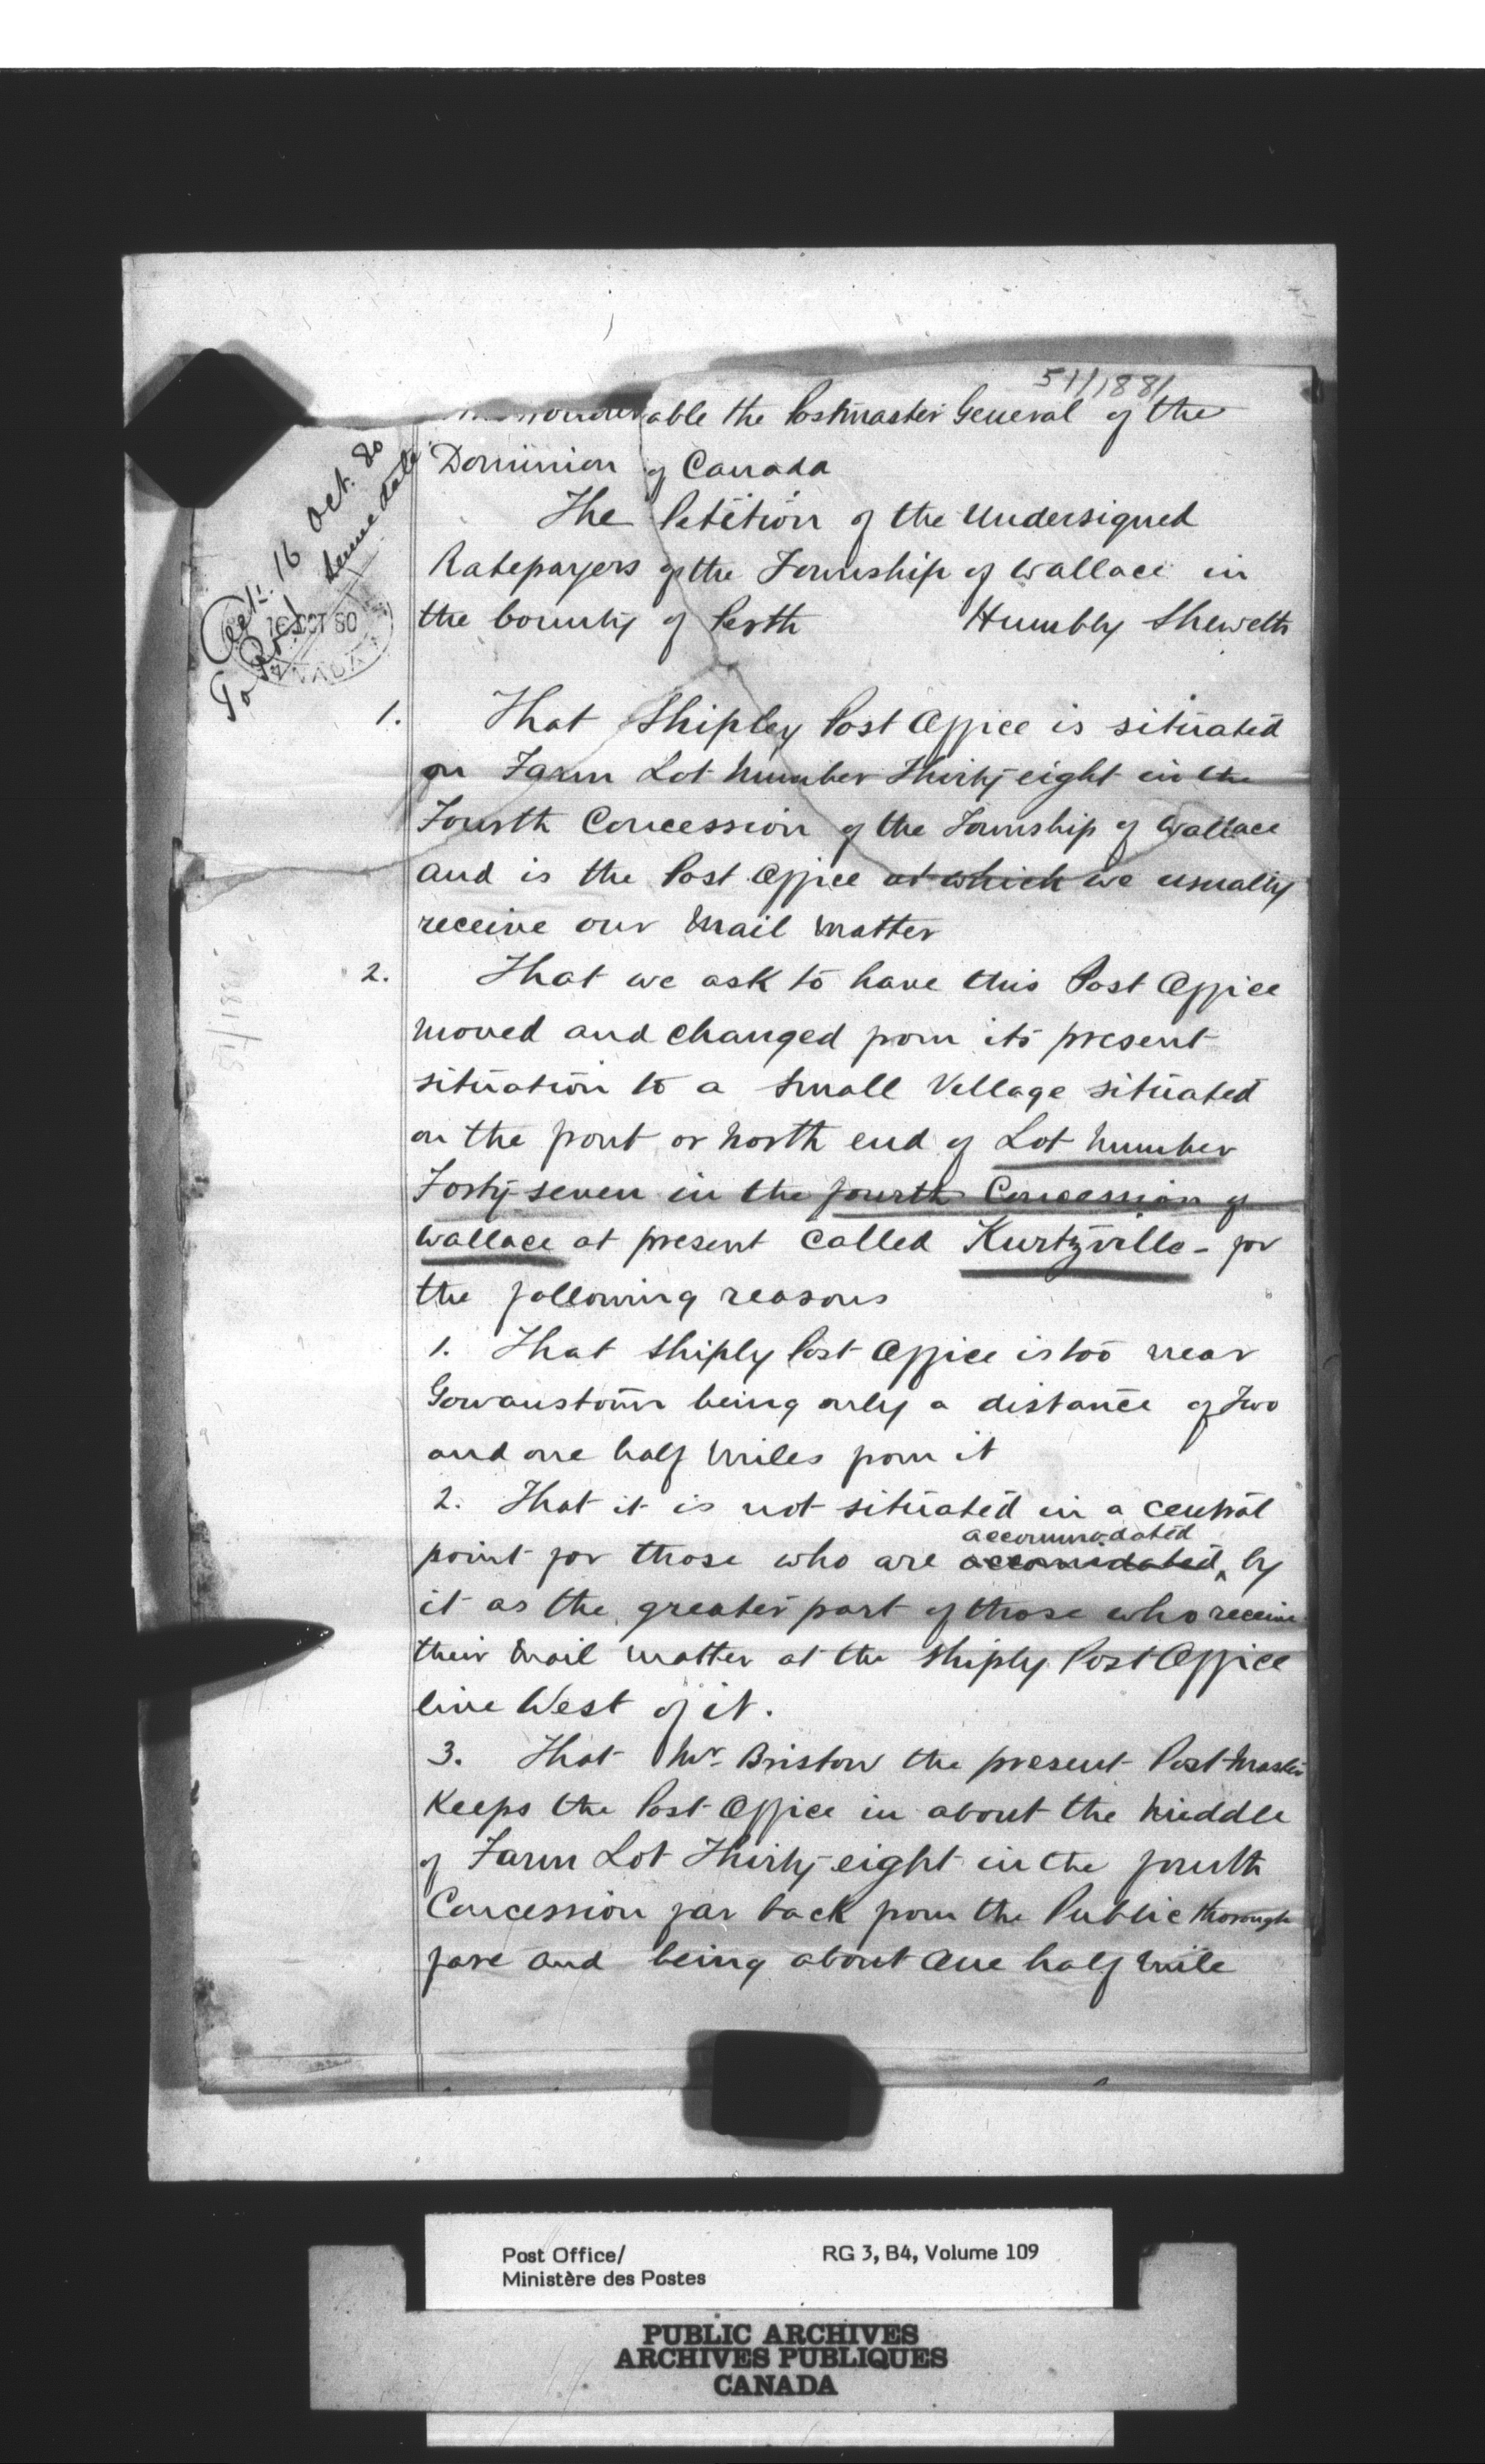 511/1881
able the Postmaster General of the
Dominion of Canada
The Petition of the Undersigned
Ratepayers of the Township of Wallace in
the County of Perth Humbly Sheweth
Ack. 16 Oct. 80
To same date
16 OCT 80
CANADA
1. That Shipley Post Office is situated
on Farm Lot Number Thirty-eight in the
Fourth Concession of the Township of Wallace
and is the Post Office at which we usually
receive our Mail Matter
2. That we ask to have this Post Office
moved and changed from its present
situation to a small Village situated
on the front or North end of Lot Number
Forty-seven in the fourth Concession of
Wallace at present called Kurtzville - for
the following reasons
1. That Shiply Post Office is too near
Gowanstown being only a distance of Two
and one half Miles from it
2. That it is not situated in a central
accommodated
point for those who are accomidated by
it as the greater part of those who receive
their Mail matter at the Shiply Post Office
live West of it.
3. That Mr. Bristow the present Post-Master
Keeps the Post Office in about the Middle
of Farm Lot Thirty-eight in the fourth
Concession far back from the Public thorough
fare and being about One half Mile
Post Office/ RG 3, B4, Volume 109
Ministère des Postes
PUBLIC ARCHIVES
ARCHIVES PUBLIQUES
CANADA